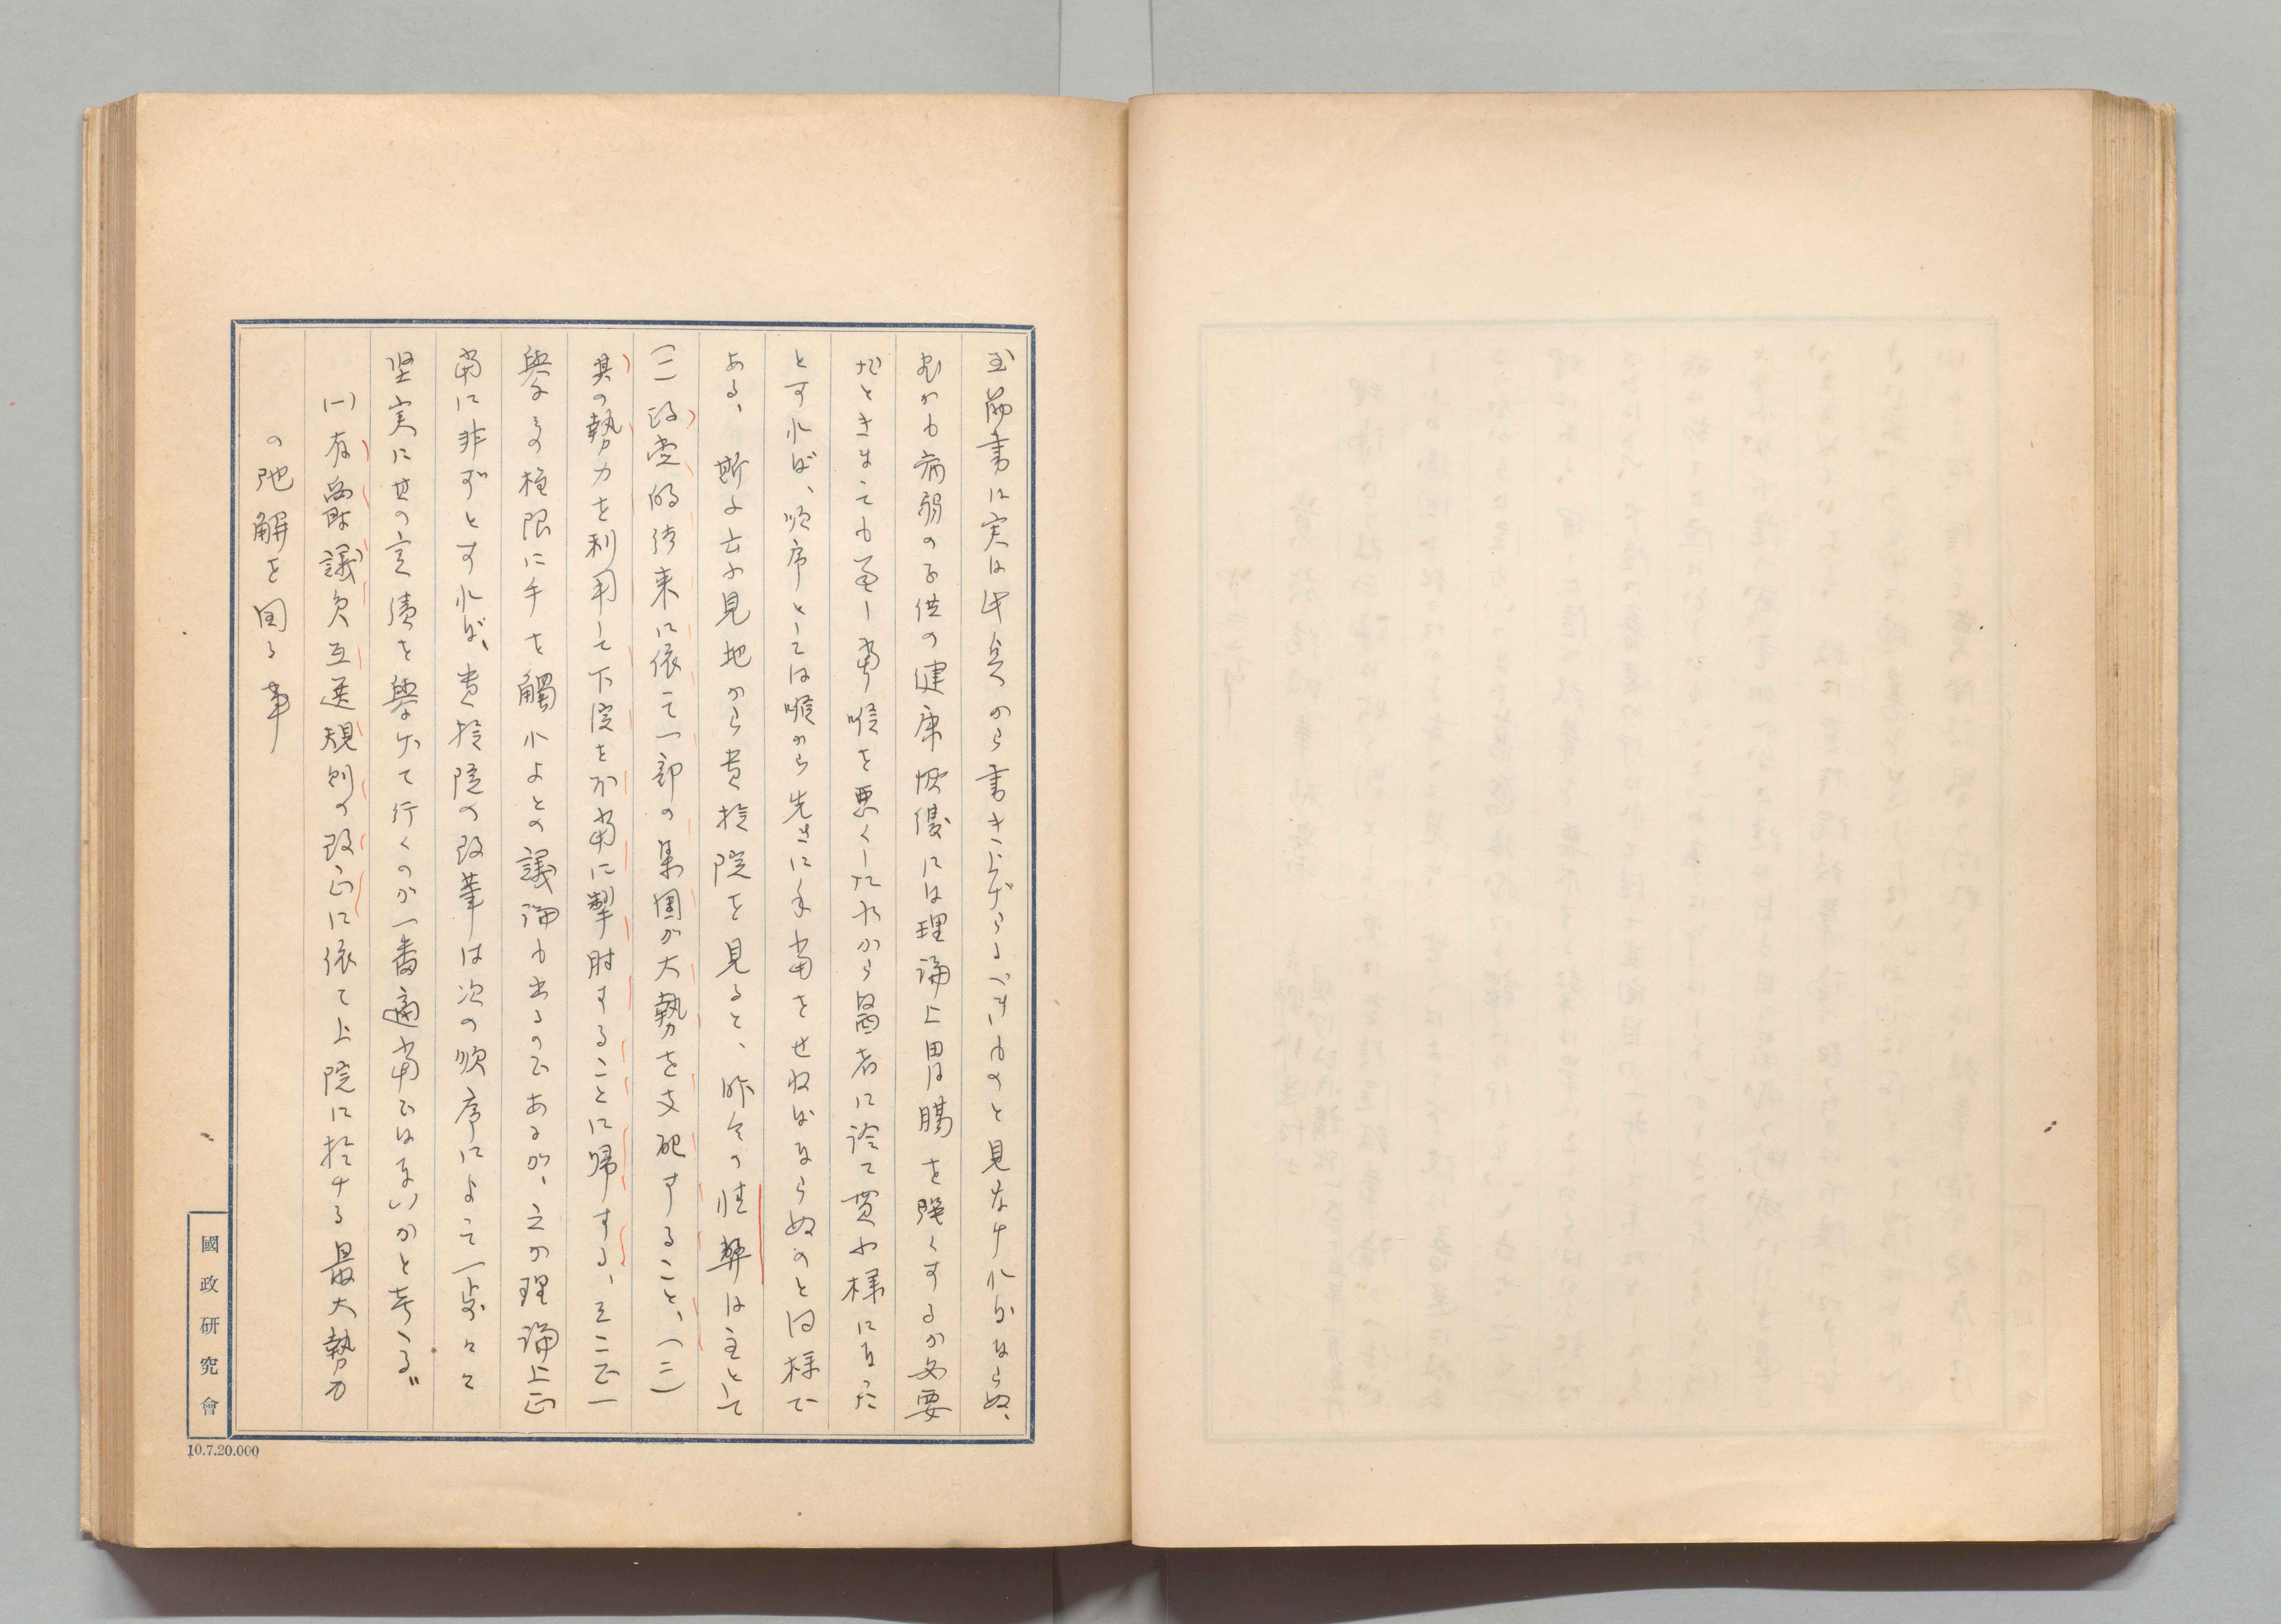 箇書は実は此点から書き上げらるべきものと見なければならぬ、
しかも病弱の子供の健康恢復には理論上胃腸を強くするが必要
だときまっても若し当分喉を悪くしたれから醫者に診て貰ふ様になった
とすれば、順序としては喉から先きに手当をせねばならぬのと同様で
ある、斯く云ふ見地から貴族院を見ると、昨今の性弊は主として
(一)政党的結束に依て一部の集團が大勢を支配すること、(二)
其の勢力を利用して下院を不当に掣肘することに帰する、
與ふる権限に手を觸れよとの議論も出るのであるが、之が理論上正
当に非ずとすれば、貴族院の改革は次の順序によって一歩々々
堅実に其の実績を舉げて行くのが一番適当ではないかと考へる
(一)有爵議員互選規則の改正に依て上院に於ける最大勢力
の弛解を図る事
國政研究會
10.7.20.000